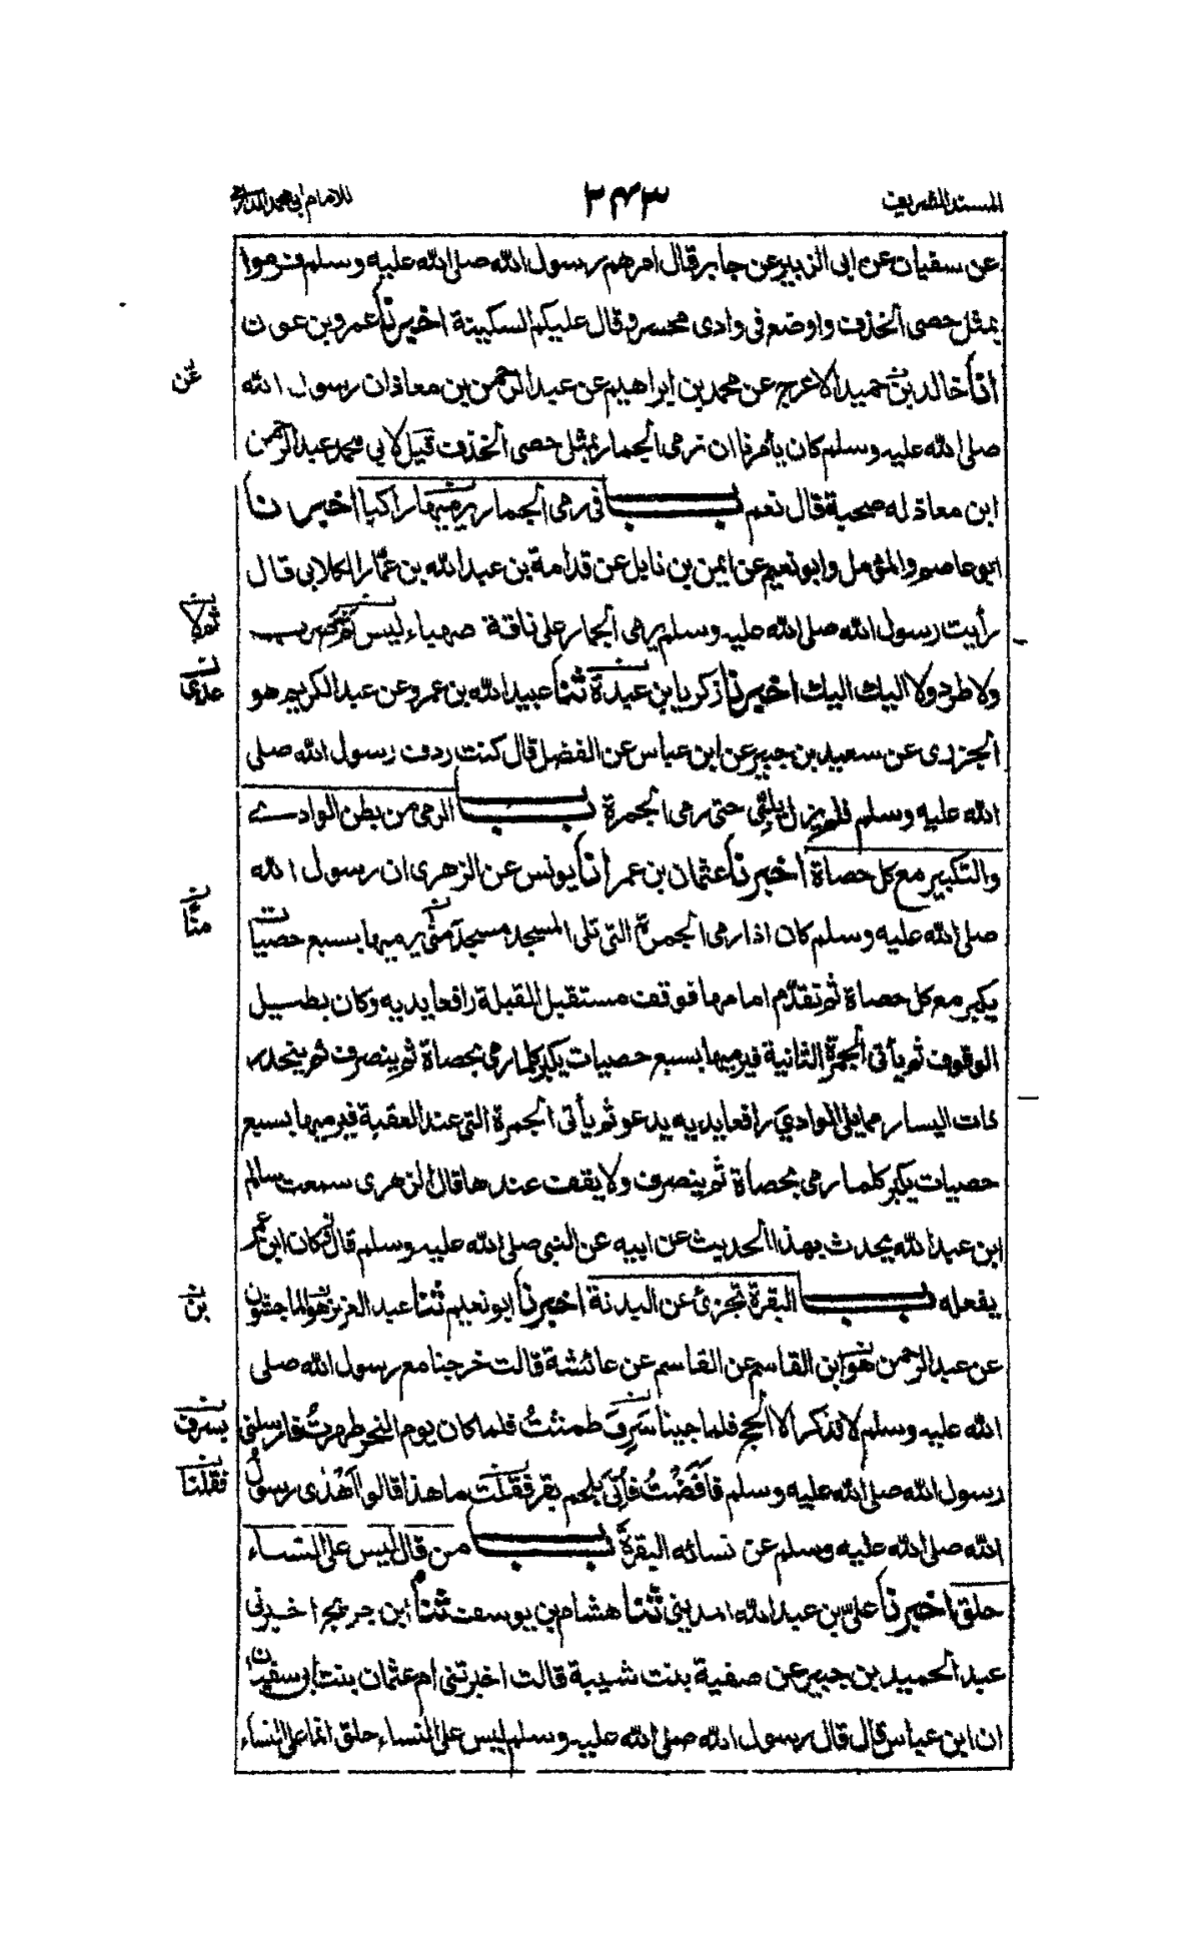 المسند الشريف
٢٤٣
للامام ابى محمد الدارمى
عن سفيان عن ابى الزبير عن جابر قال امرهم رسول الله صلى الله عليه وسلم فرموا
بمثل حصى الخذف واوضع فى وادى محسر وقال عليكم السكينة اخبرنا عمرو بن عون
انا خالد بن حميد الاعرج عن محمد بن ابراهيم عن عبد الرحمن بن معاذ ان رسول الله
عن
صلى الله عليه وسلم كان يأمرنا ان نرمى الجمار بمثل حصى الخذف قيل لابى محمد عبد الرحمن
ابن معاذ له صحبة قال نعم باب فى رمى الجمار يرميها راكبا اخبرنا
ابو عاصم والمؤمل وابو نعيم عن ايمن بن نابل عن قدامة بن عبد الله بن عمار الكلابى قال
رأيت رسول الله صلى الله عليه وسلم يرمى الجمار على ناقة صهباء ليس ثم ضرب
ثم لا
ولا طرد ولا اليك اليك اخبرنا زكريا بن عبدة ثنا عبيد الله بن عمرو عن عبد الكريم هو
عدى
الجزرى عن سعيد بن جبير عن ابن عباس عن الفضل قال كنت ردف رسول الله صلى
الله عليه وسلم فلم يزل يلبى حتى رمى الجمرة باب الرمى من بطن الوادے
والتكبير مع كل حصاة اخبرنا عثمان بن عمر انا يونس عن الزهرى ان رسول الله
صلى الله عليه وسلم كان اذا رمى الجمرة التى تلى المسجد مسجد منى يرميها بسبع حصيات
منًا
يكبر مع كل حصاة ثم تقدم امامها فوقف مستقبل القبلة رافعا يديه وكان يطيل
الوقوف ثم يأتى الجمرة الثانية فيرميها بسبع حصيات يكبر كلما رمى بحصاة ثم ينصرف ثم ينحدر
ذات اليسار مما يلى الوادي رافعا يديه يدعو ثم يأتى الجمرة التى عند العقبة فيرميها بسبع
حصيات يكبر كلما رمى بحصاة ثم ينصرف ولا يقف عندها قال الزهرى سمعت سالم
ابن عبد الله يحدث بهذا الحديث عن ابيه عن النبى صلى الله عليه وسلم قال فكان ابن عمر
يفعله باب البقرة تجزئ عن البدنة اخبرنا ابو نعيم ثنا عبد العزيز هو الماجشون
بن
عن عبد الرحمن هو ابن القاسم عن القاسم عن عائشة قالت خرجنا مع رسول الله صلى
الله عليه وسلم لا نذكر الا الحج فلما جينا سَرِفَ طمثتُ فلما كان يوم النحر طهرتُ فارسلنى
بسرف
رسول الله صلى الله عليه وسلم فَاَفَضْتُ فأتى بلحم بقر فقلت ما هذا قالوا اَهْدٰى رسول
فقلنا
الله صلى الله عليه وسلم عن نسائه البقرة باب من قال ليس على النساء
حلق اخبرنا علىّ بن عبد الله المدينى ثنا هشام بن يوسف ثنا ابن جريج اخبرنى
عبد الحميد بن جبير عن صفية بنت شيبة قالت اخبرتنى ام عثمان بنت ابى سفين
ان ابن عباس قال قال رسول الله صلى الله عليه وسلم ليس على النساء حلق انما على النساء